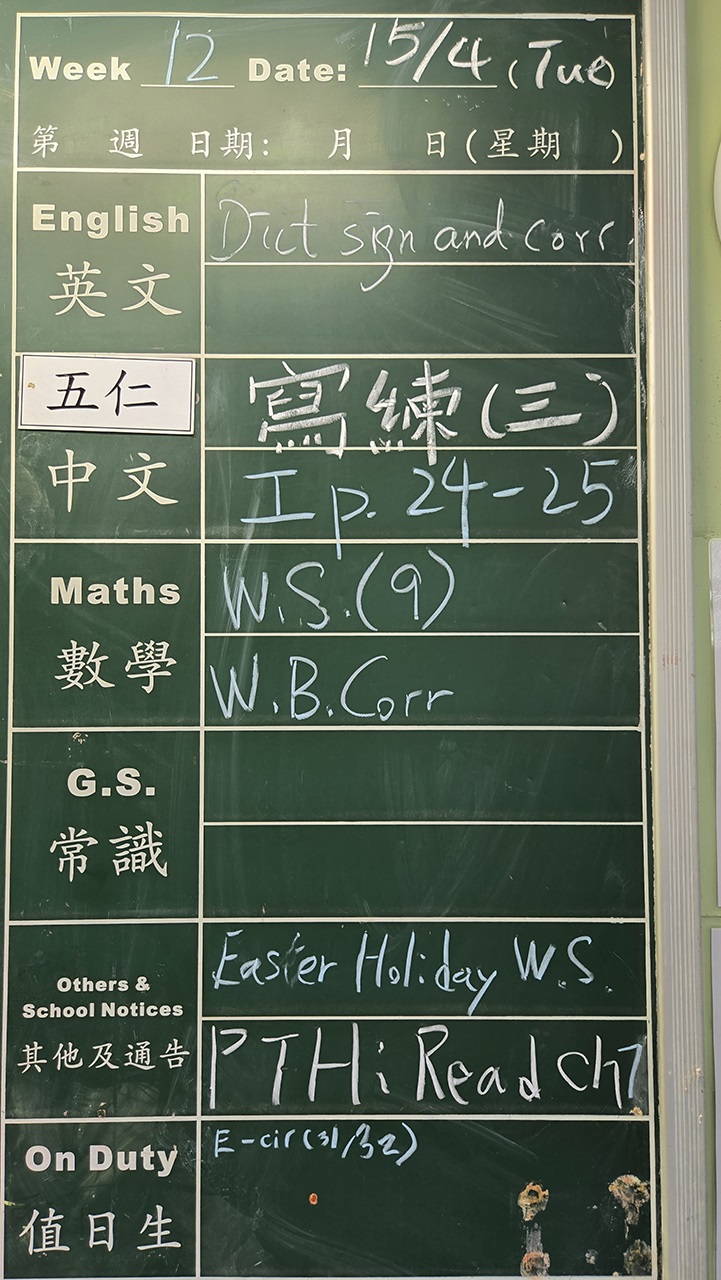 Week 12 Date: 15/4 (Tue)
第 週 日期: 月 日(星期 )
English Dict sign and corr.
英文
五仁 寫練(三)
中文 I p. 24-25
Maths W.S.(9)
數學 W.B.Corr
G.S.
常識
Others & Easter Holiday W.S.
School Notices
其他及通告 PTH: Read ch7
On Duty E-cir(31/32)
值日生